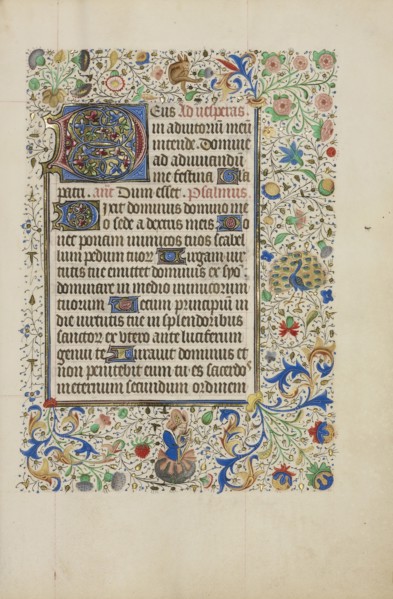 Deus Ad vesperas
in adiutoriu᷑ meu᷑
intende. Domine
ad adiuuandu᷑
me festina Gl̃a
patri. an̄. Dum esset. Psalmus.
Dixit dominus domino me
o sede a dextris meis Do
nec ponam inimicos tuos scabel
lum pedum tuoꝝ Uirgam uir
tutis tue emittet dominus ex syon
dominare in medio inimicorum
tuorum Tecum principiu᷑ in
die uirtutis tue in splendoribus
sanctoꝝ ex utero ante luciferum
genui te Iurauit dominus et
non penitebit eum tu es sacerdos
in eternum secundum ordinem